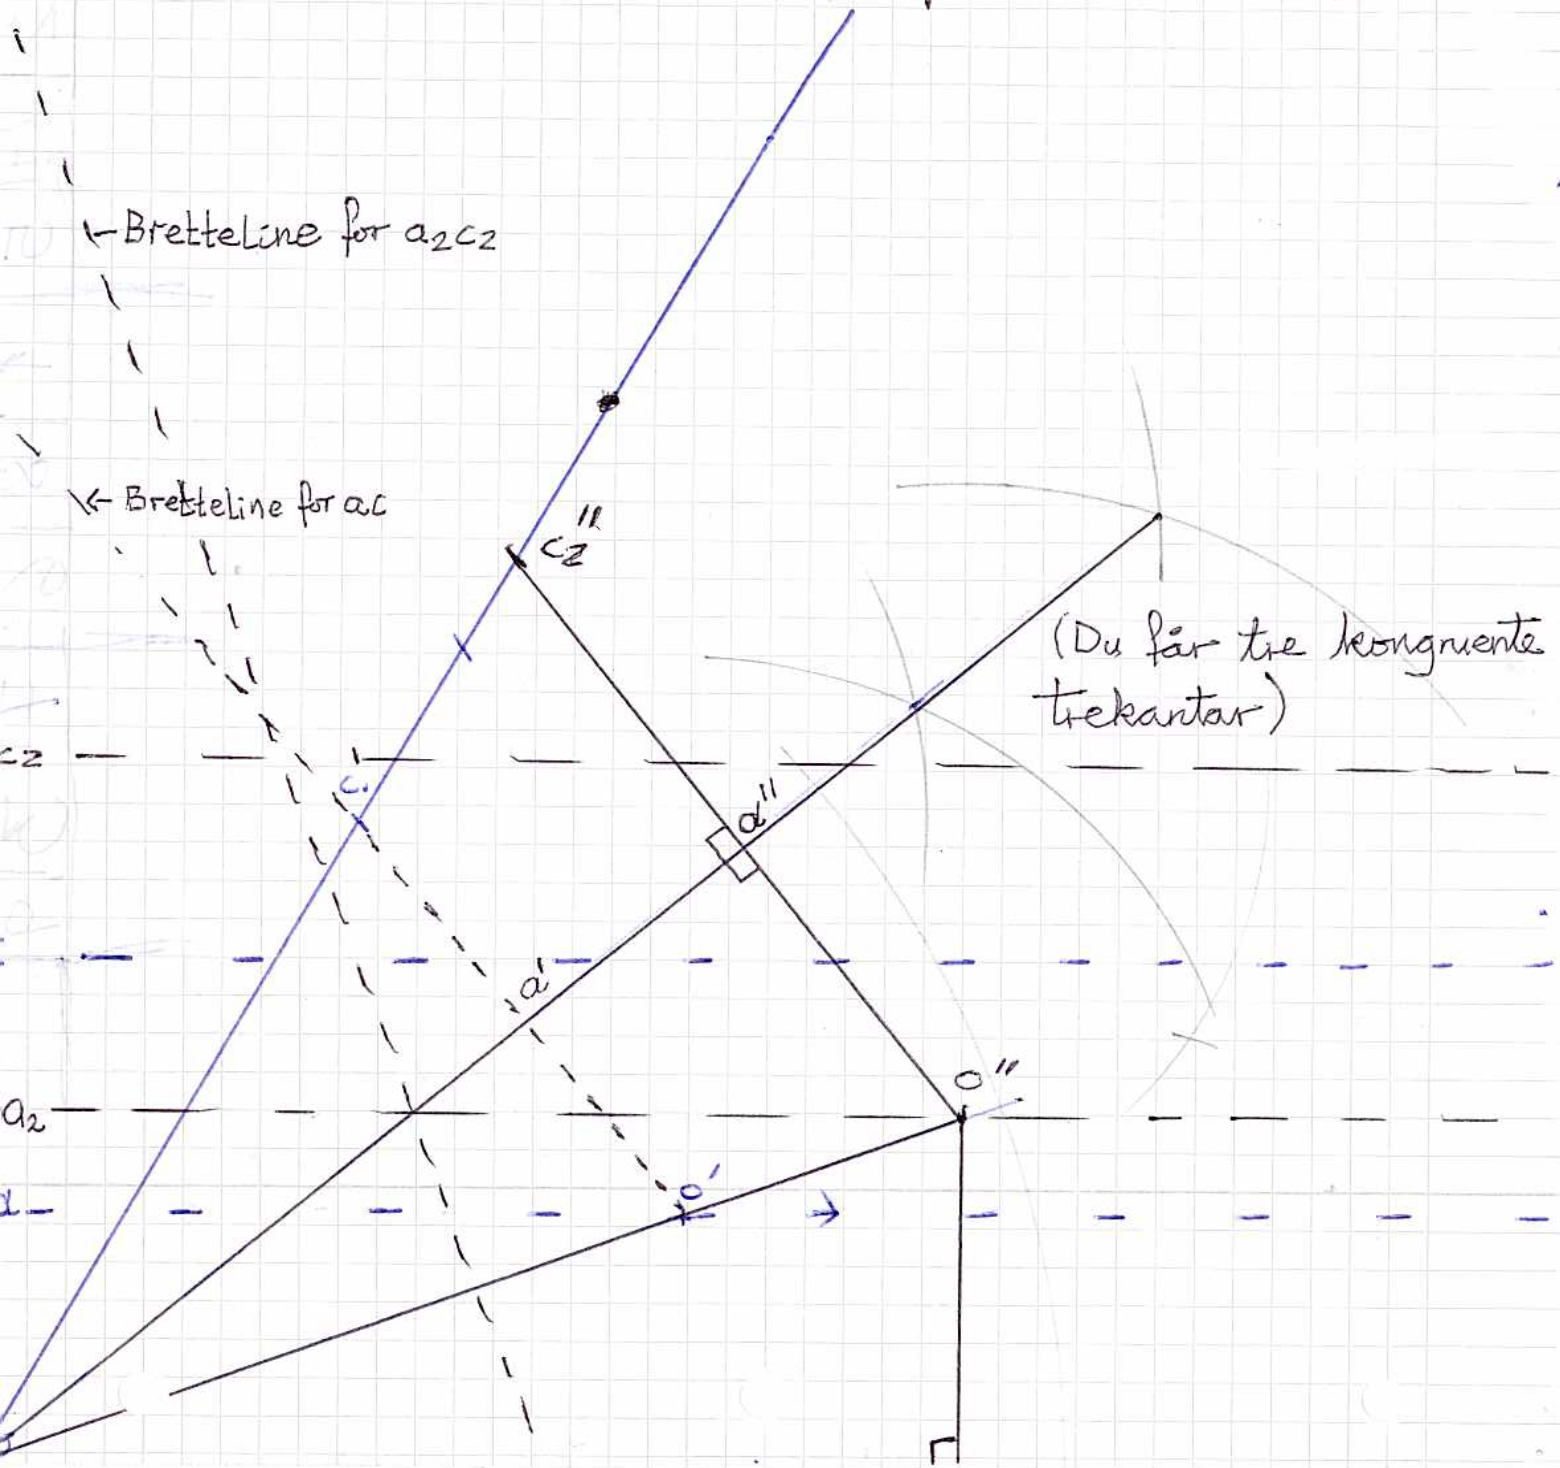 ← Bretteline for a₂c₂
← Bretteline for ac
c₂''
(Du får tre kongruente
trekantar)
c₂
c'
a''
a'
o''
a₂
o'
d